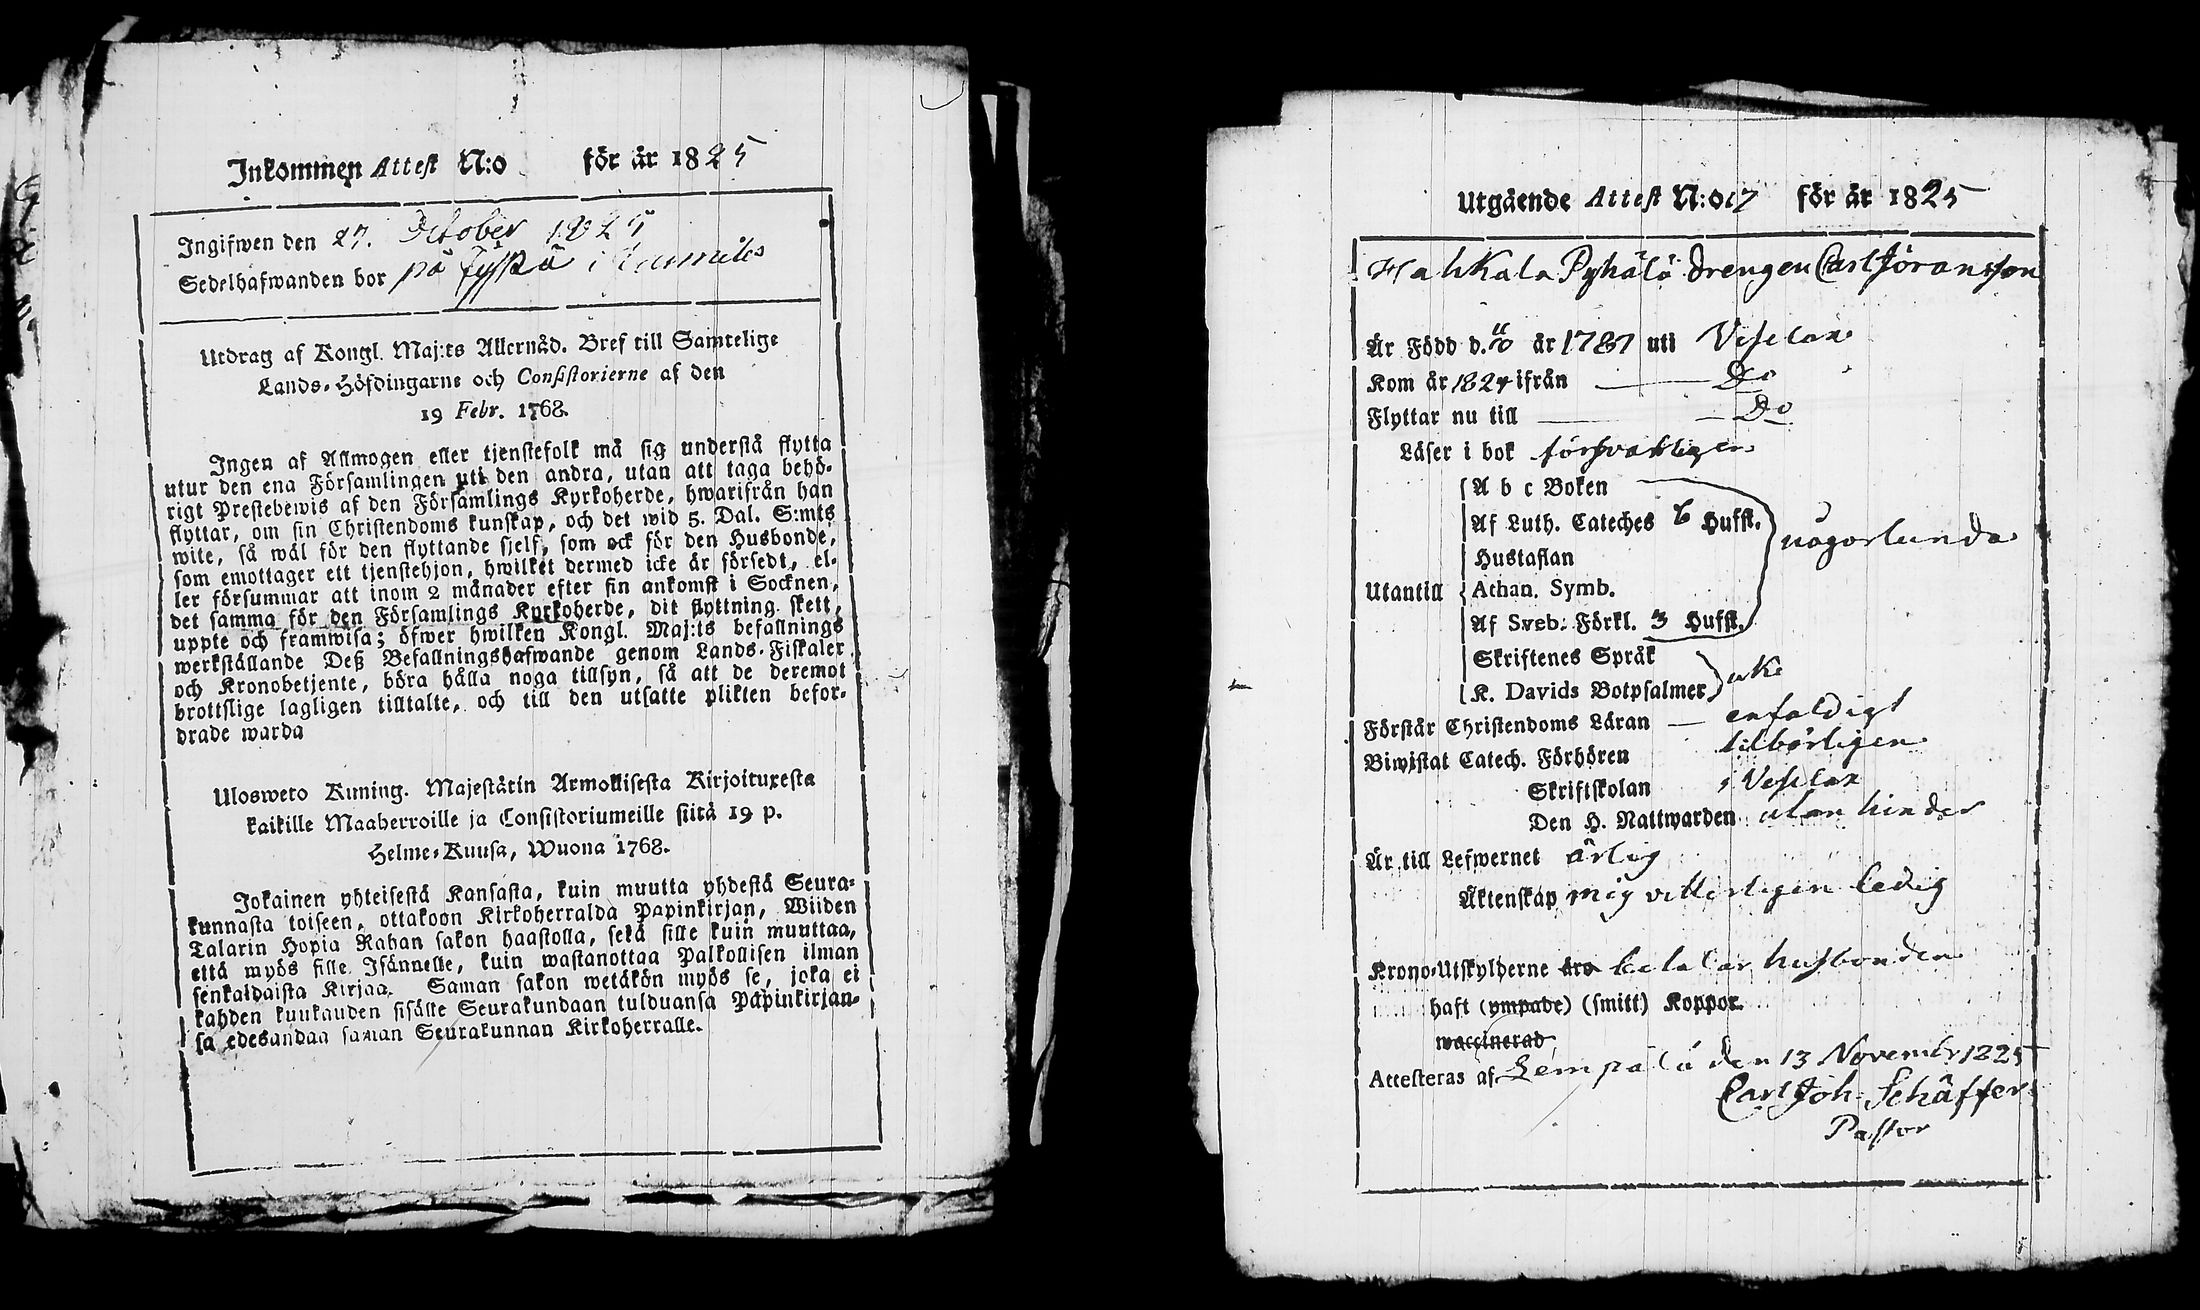 Inkommen Attest N:o för år 1825
Ingifwen den 27. October 1825
Sedelhafwanden bor på i
Utdrag af Kongl. Maj:ts Allernåd. Bref till Samtelige
Lands-Höfdingarne och Consistorierne af den
19 Febr. 1768.
Ingen af Allmogen eller tjenstefolk må sig understå flytta
utur den ena Församlingen uti den andra, utan att taga behö-
rigt Prestebewis af den Församlings Kyrkoherde, hwarifrån han
flyttar, om sin Christendoms kunskap, och det wid 5. Dal. S:mts
wite, så wäl för den flyttande sjelf, som ock för den Husbonde,
som emottager ett tjenstehjon, hwilket dermed icke är försedt, el-
ler försummar att inom 2 månader efter sin ankomst i Socknen,
det samma för den Församlings Kyrkoherde, dit flyttning skett,
uppte och framwisa; öfwer hwilken Kongl. Maj:ts befallnings
werkställande Deß Befallningshafwande genom Lands-Fiskaler
och Kronobetjente, böra hålla noga tillsyn, så att de deremot
brottslige lagligen tilltalte, och till den utsatte plikten befor-
drade warda
Ulosweto Kuning. Majestätin Armollisesta Kirjoituxesta
kaikille Maaherroille ja Consistoriumeille siitä 19 p.
Helme-Kuusa, Wuona 1768.
Jokainen yhteisestä Kansasta, kuin muutta yhdestä Seura-
kunnasta toiseen, ottakoon Kirkoherralda Papinkirjan, Wiiden
Talarin Hopia Rahan sakon haastolla, sekä sille kuin muuttaa,
että myös sille Isännelle, kuin wastanottaa Palkollisen ilman
senkaldaista Kirjaa. Saman sakon wetäkön myös se, joka ei
kahden kuukauden sisälle Seurakundaan tulduansa Papinkirjan-
sa edesandaa saman Seurakunnan Kirkoherralle.
Utgående Attest N:o 17 för år 1825
Hahkala Pyhälä drengen Carl Jöransson
Är Född d. år 1787 uti Vesilax
Kom år 1824 ifrån Do
Flyttar nu till Do
Läser i bok försvarligen
A b c Boken
Af Luth. Cateches 6 Hufst.
Hustaflan någorlunda
Utantill Athan. Symb.
Af Sveb. Förkl. 3 Hufst.
Skriftenes Språk
K. Davids Botpsalmer icke
Förstår Christendoms Läran enfaldigt
Biwistat Catech. Förhören tilbörligen
Skriftskolan i Vesilax
Den H. Nattwarden utan hinder
Är till Lefwernet ärlig
Äktenskap mig vitterligen ledig
Krono-Utskylderne äro betalar husbonden
haft (ympade) (smitt) Koppor.
waccinerad
Attesteras af Lempälä den 13 Novembr 1825
Carl Joh. Schäffer
Pastor